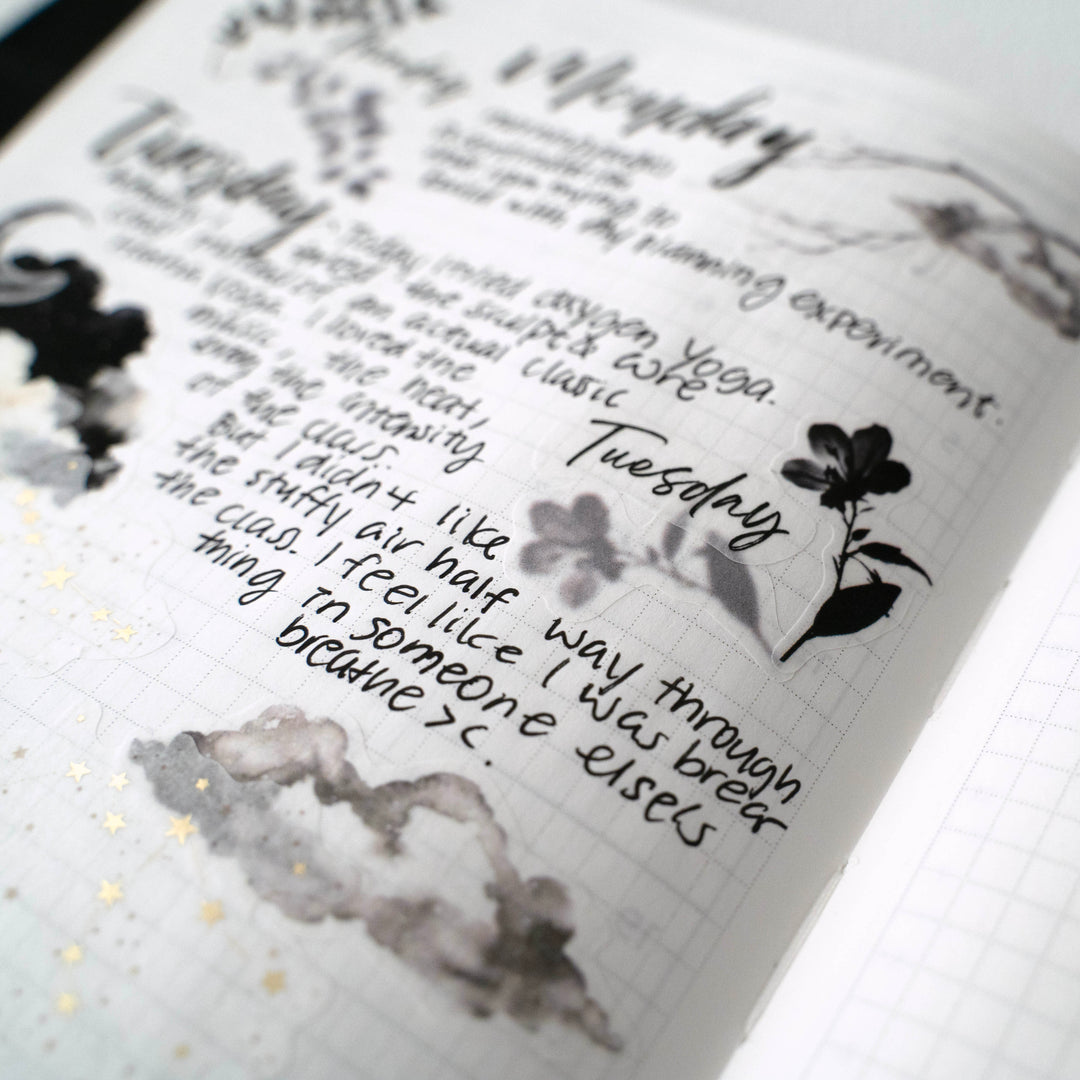 Monday
that I am trying to
build with my running experiment.
Tuesday
Today I tried oxygen Yoga.
tried the sculpt & core
class instead of an actual classic
yoga. I loved the
music, the heat,
and the intensity
of the class.
But I didn't like
the stuffy air half way through
the class. I feel like I was brear
thing in someone elsels
breathe ><.
Tuesday